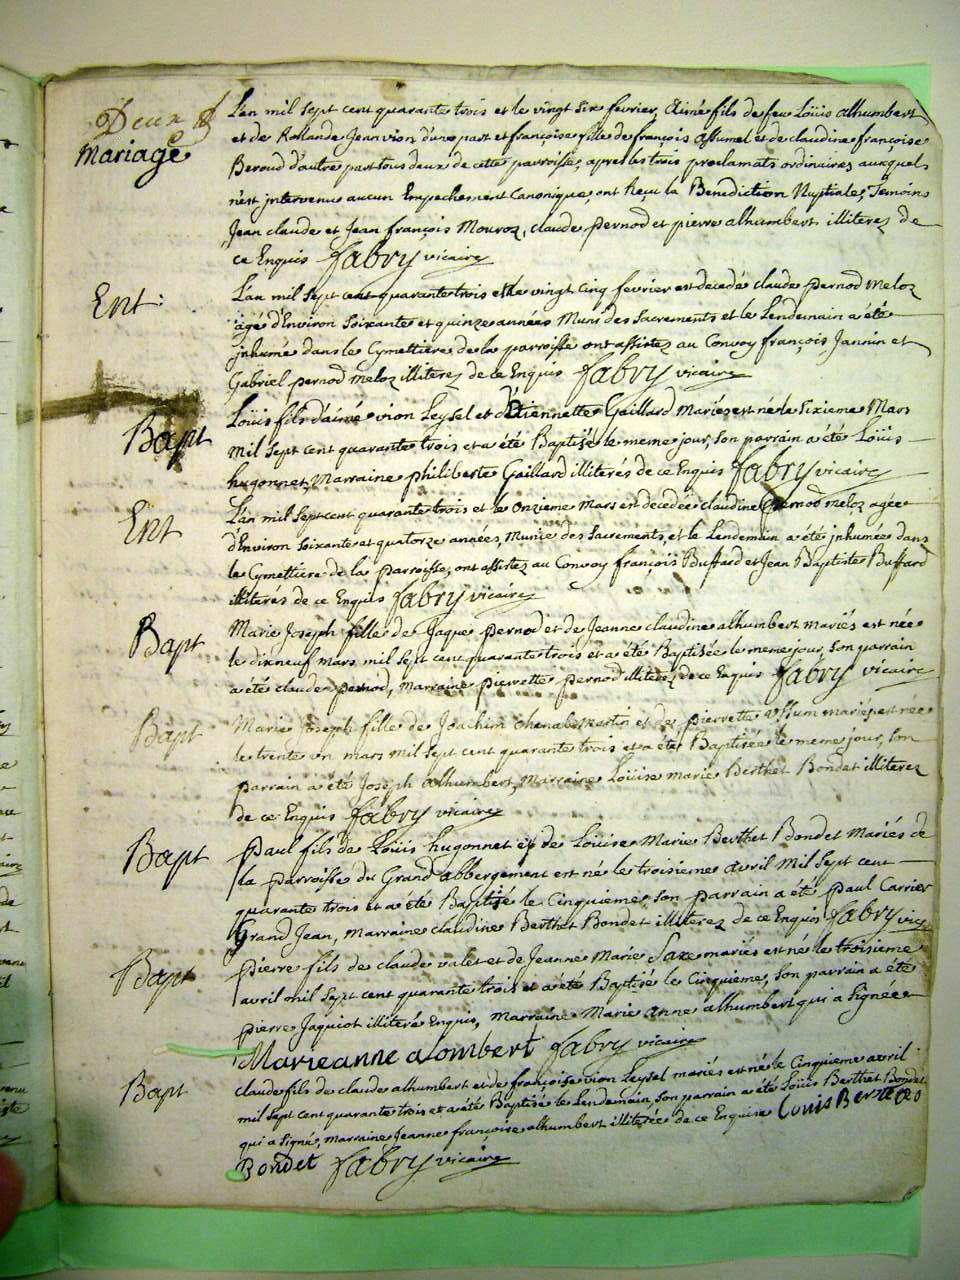 Deux
mariage
L'an mil sept cent quarante trois et le vingt six fevrier, Aimé fils de feu Loüis alhumbert
et de Rollande Jeanvion d'une part et françoise fille de françois assumel et de claudine françoise
Beroud d'autre part tous deux de cette parroisse, apres les trois proclamats ordinaires auxquels
n'est intervenu aucun Empechement Canonique, ont Reçu la Benediction Nuptiale, Temoins
Jean claude et Jean françois Mouroz, claude pernod et pierre alhumbert illiterez de
ce Enquis fabry vicaire
Ent:
L'an mil sept cent quarante trois et le vingt cinq fevrier est decedé claude pernod Meloz
agé d'Environ soixante et quinze années Muni des Sacrements et le Lendemain a été
jnhumé dans le Cymettiere de la parroisse ont assistez au Convoy françois Jannin et
Gabriel pernod meloz illiterez de ce Enquis fabry vicaire
Bapt
Loüis fils d'aimé vion Leysel et d'Etiennette Gaillard Mariés est né le sixieme Mars
mil sept cent quarante trois et a été Baptisé le meme jour, son parrain a été Loüis
hugonnet, Marraine philiberte Gaillard illiterés de ce Enquis fabry vicaire
Ent
L'an mil sept cent quarante trois et le onzieme Mars est decedée claudine pernod meloz agée
d'Environ soixante et quatorze années, Munie des Sacrements, et le Lendemain a été jnhumée dans
le Cymettiere de la parroisse, ont assistez au Convoy françois Buffard et Jean Baptiste Buffard
illiterés de ce Enquis fabry vicaire
Bapt
Marie Joseph fille de Jaque pernod et de Jeanne claudine alhumbert mariés est née
le dixneuf mars mil sept cent quarante trois et a été Baptisée le meme jour, son parrain
a étés claude pernod, marraine pierrette pernod illiterez de ce Enquis fabry vicaire
Bapt
Marie Joseph fille de Joachim chenal martin et de pierrette mariés est née
le trente un mars mil sept cent quarante trois et a été Baptisée le meme jour, son
parrain a été Joseph alhumbert, Marraine Loüise marie Berthet Bondet illiterez
de ce Enquis fabry vicaire
Bapt
Paul fils de Loüis hugonnet et de Louise Marie Berthet Bondet Mariés de
la parroisse du Grand abbergement est né le troisieme avril mil sept cent
quarante trois et a été Baptisé le Cinquieme, son parrain a été Paul Carrier
Grand Jean, Marraine claudine Berthet Bondet illiterez de ce Enquis fabry vic
Bapt
pierre fils de claude valet et de Jeanne Marie Saxe mariés est né le troisieme
avril mil sept cent quarante trois et a été Baptisé le Cinquieme, son parrain a été
pierre Jaquiot illiteré Enquis, marraine Marie anne alhumbert qui a signée
Marieanne alombert fabry vicaire
Bapt
claude fils de claude alhumbert et de françoise vion Leysel mariés est né le Cinquieme avril
mil sept cent quarante trois et a été Baptisé le Lendemain, son parrain a été Loüis Berthet Bondet
qui a signé, marraine Jeanne françoise alhumbert illiterée de ce Enquise Louis Berteto
Bondet fabry vicaire